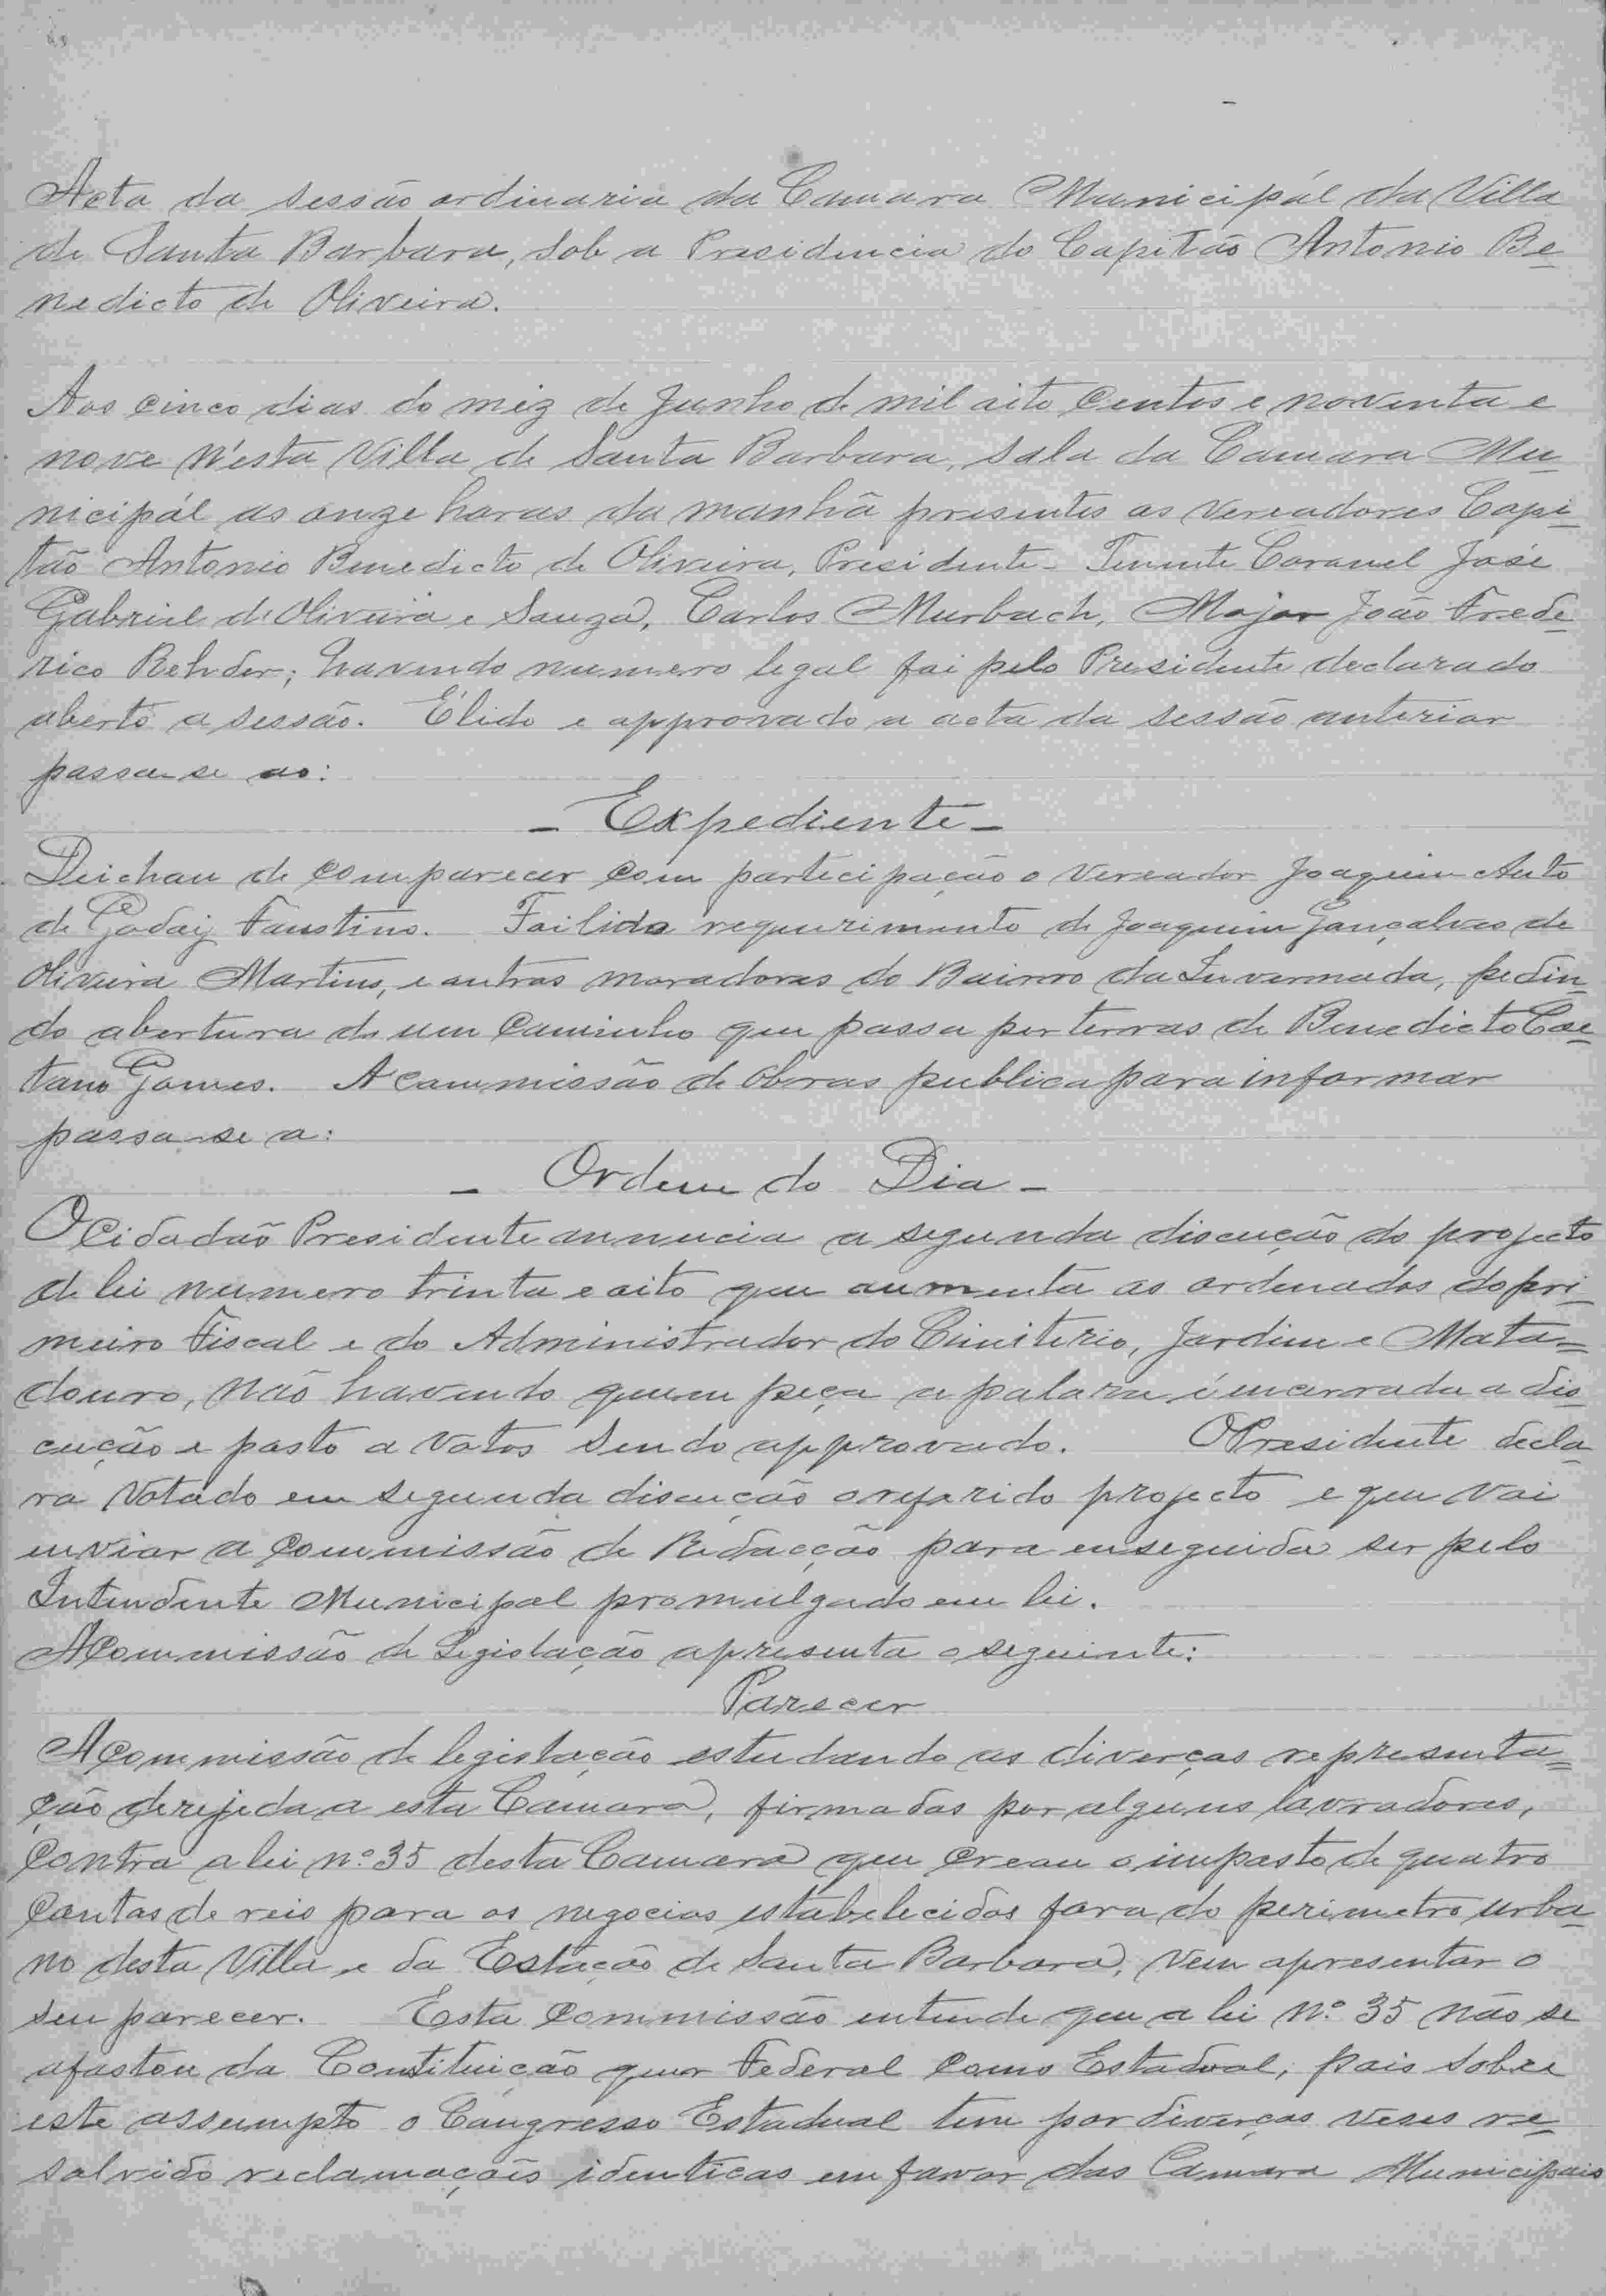 Acta da sessão ordinaria da Camara Municipál da Villa
de Santa Barbara, sob a Presidencia do Capitão Antonio Be=
nedicto de Oliveira.
Aos cinco dias do mez de Junho de mil oito centos e noventa e
nove n'esta Villa de Santa Barbara, sala da Camara Mu=
nicipál as onze horas da manhã presentes os vereadores Capi=
tão Antonio Benedicto de Oliveira, Presidente - Tenente Coronel José
Gabriel de Oliveira e Souza, Carlos Murbach, Major João Frede=
rico Rehder; havendo numero legal foi pelo Presidente declarado
aberto a sessão. É lido e approvado a acta da sessão anterior
passa-se ao:
- Expediente -
Deichou de comparecer com participação o vereador Joaquim Anto
de Godoij Faustino. Foi lido requerimento de Joaquim Gonçalves de
Oliveira Martins, e outros moradores do Bairro da Invernada, pedin=
do abertura de um caminho que passa por terras de Benedicto Cae=
tano Gomes. A commissão de obras publica para informar
passa-se a:
- Ordem do Dia -
O Cidadão Presidente annucia a segunda discução do projecto
de lei numero trinta e oito que aumenta os ordenados do pri=
meiro Fiscal e do Administrador do Cimiterio, Jardim e Mata=
douro, não havendo quem peça a palavra é incerrada a dis=
cução e posto a votos sendo approvado. O Presidente decla=
ra votado em segunda discução o referido projecto e que vai
enviar a commissão de Redacção para em seguida ser pelo
Intendente Municipal promulgado em lei.
A Commissão de Legislação apresenta o seguinte:
Parecer
A Commissão de legislação estudando as diverças representa=
ção derejeda a esta Camara, firmadas por alguns lavradores,
contra a lei nº 35 desta Camara que creou o imposto de quatro
contos de reis para os negocios estabelecidos fora do perimetro urba=
no desta Villa e da Estação de Santa Barbara, vem apresentar o
seu parecer. Esta commissão entende que a lei Nº 35 não se
afastou da Constituição quer Federal como Estadoal, pois sobre
este assumpto o Congresso Estadual tem por diverças veses re=
solvido reclamações identicas em favor das Camara Municipais